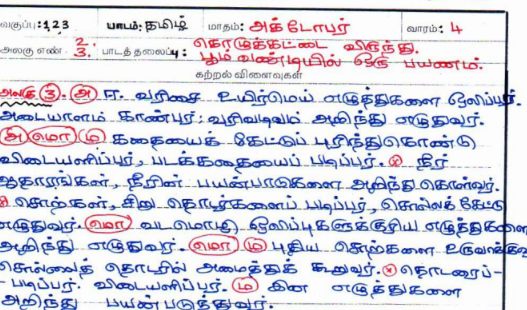 வகுப்பு:1,2,3 பாடம்: தமிழ் மாதம்: அக்டோபர் வாரம்: 4
அலகு எண் : 2/3. பாடத்தலைப்பு : கொழுக்கட்டை விருந்து.
பூம் வண்டியில் ஒரு பயணம்.
கற்றல் விளைவுகள்
அலகு 3. அ ஈ. வரிசை உயிர்மெய் எழுத்துகளை ஒலிப்பர்.
அடையாளம் காண்பர்; வரிவடிவம் அறிந்து எழுதுவர்.
அ மொ ம கதையைக் கேட்டுப் புரிந்துகொண்டு
விடையளிப்பர், படக்கதையைப் படிப்பர். நீர்
ஆதாரங்கள், நீரின் பயன்பாடுகளை அறிந்து கொள்வர்.
சொற்கள், சிறு தொடர்களைப் படிப்பர், சொல்லக் கேட்டு
எழுதுவர். மொ வடமொழி ஒலிப்புகளுக்குரிய எழுத்துகளை
அறிந்து எழுதுவர். மொ ம புதிய சொற்களை உருவாக்குவ
சொல்லைத் தொடரில் அமைத்துக் கூறுவர். தொடரைப்-
- படிப்பர். விடையளிப்பர். ம இன எழுத்துகளை
அறிந்து பயன்படுத்துவர்.